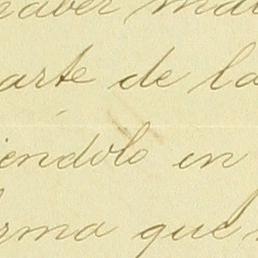 haber man
arte de la
iéndolo en
rma que